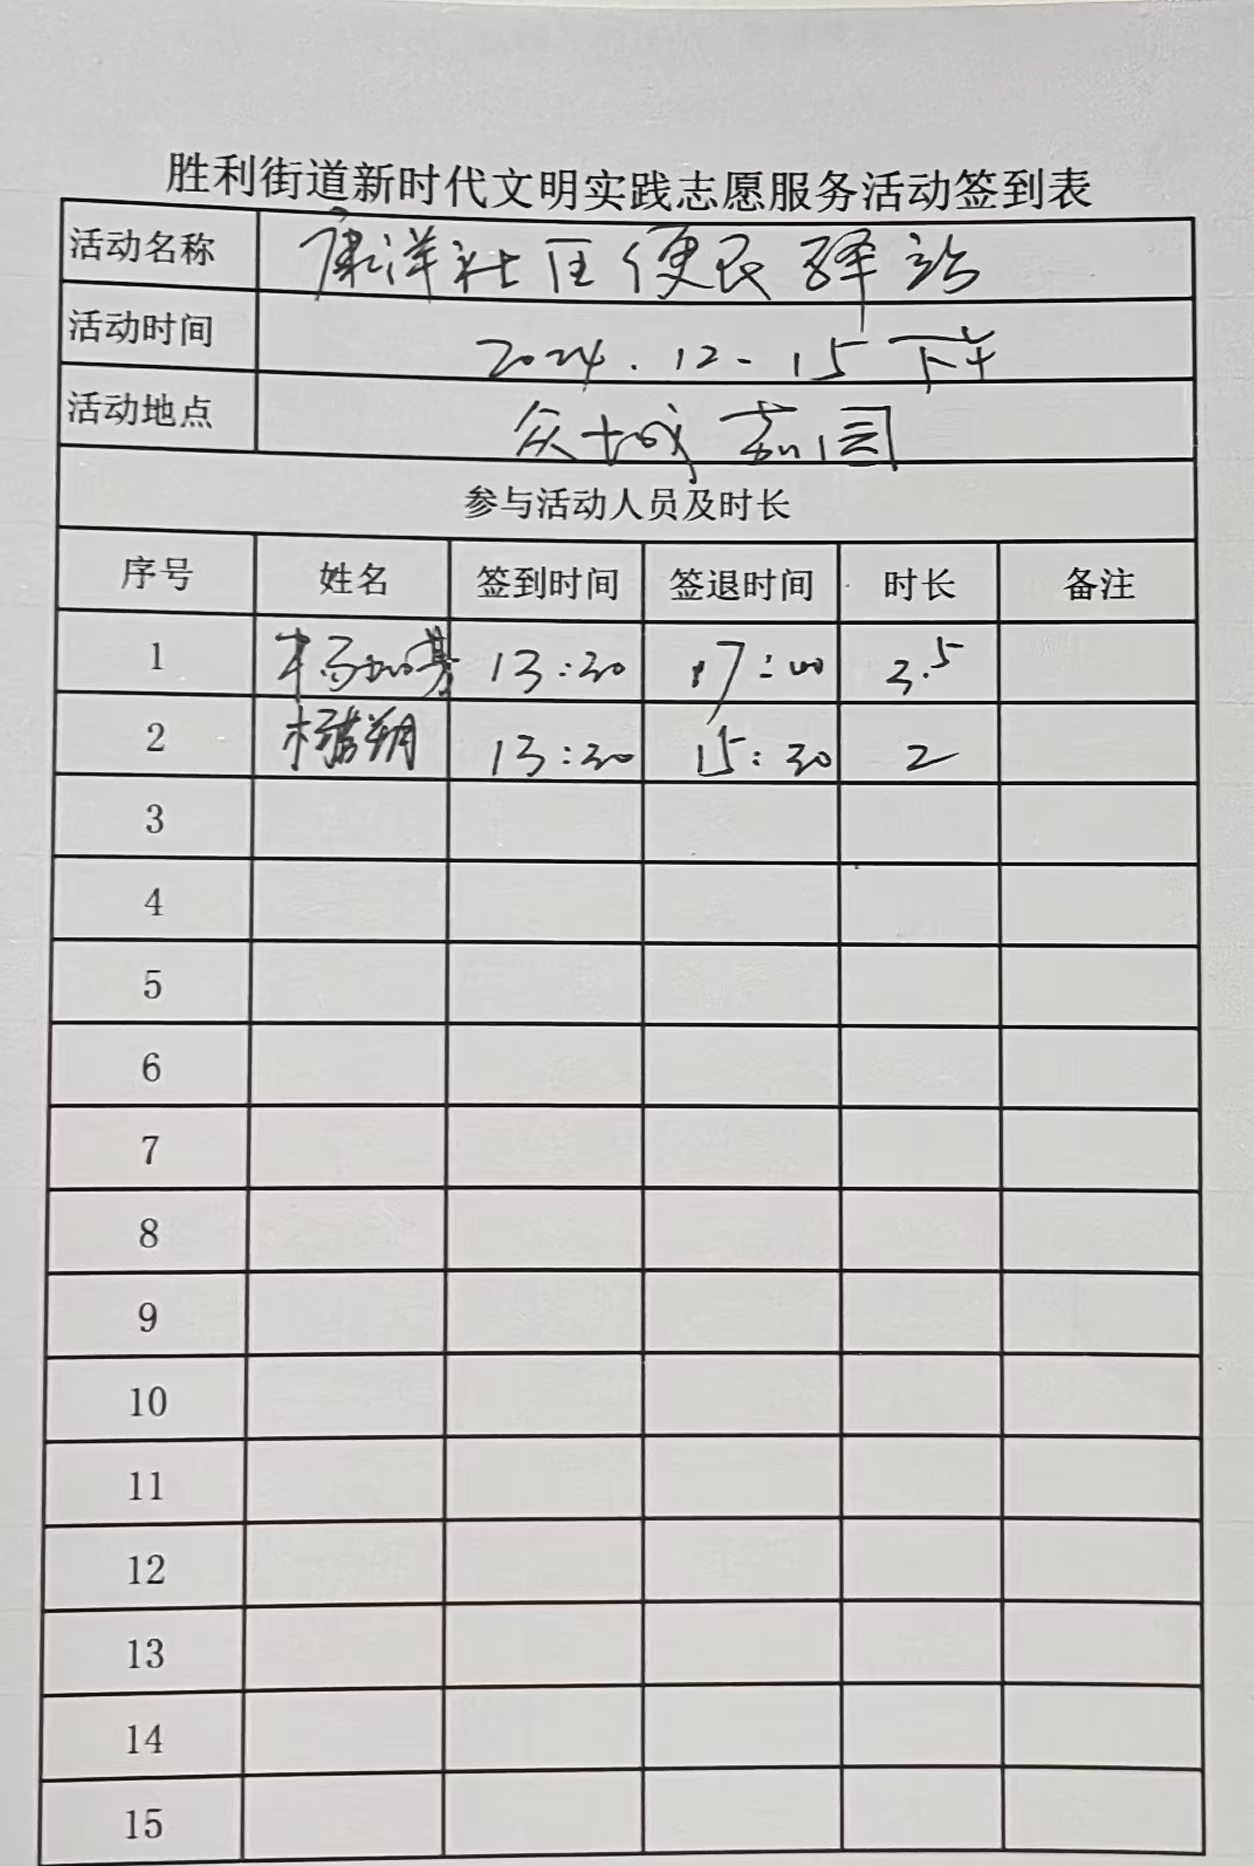 胜利街道新时代文明实践志愿服务活动签到表
活动名称 康洋社区便民驿站
活动时间 2024.12-15下午
活动地点 众城嘉园
参与活动人员及时长
序号 姓名 签到时间 签退时间 时长 备注
1 13:30 17:00 3.5
2 13:30 15:30 2
3
4
5
6
7
8
9
10
11
12
13
14
15